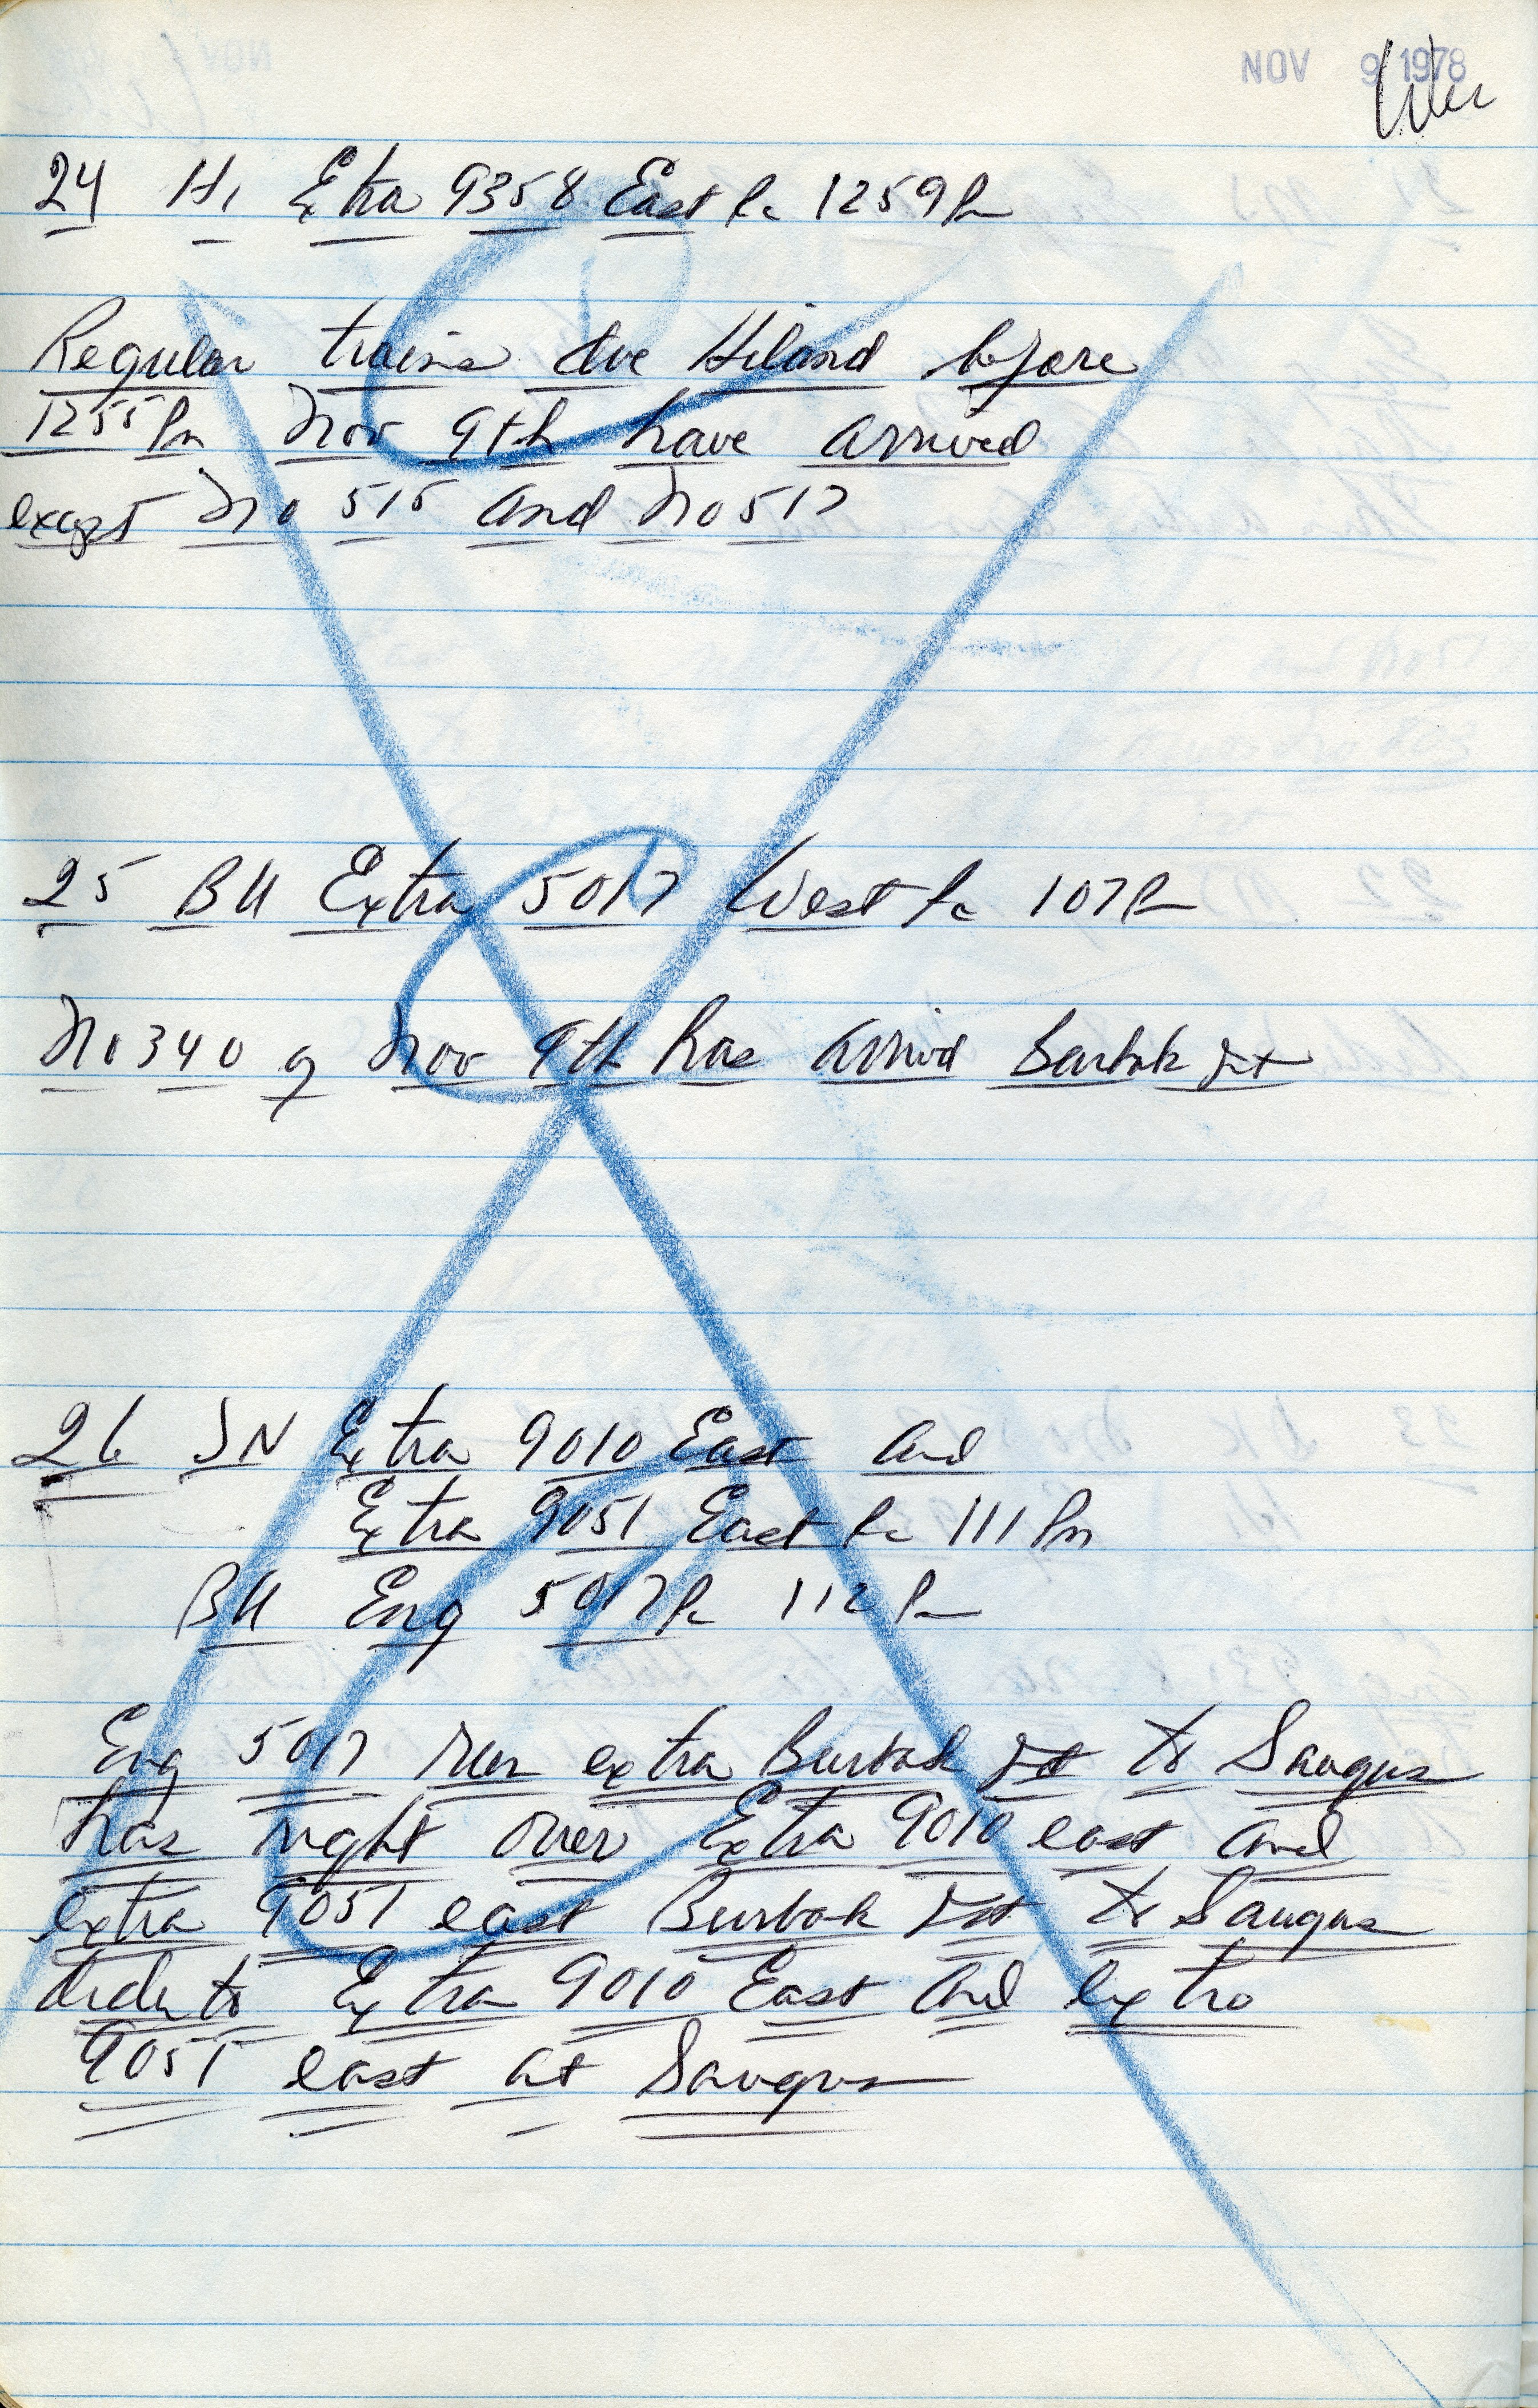 NOV 9 1978
24 Hi Extra 9358 East 1259 Pm
Regular trains due Hiland before
1255 Pm Nov 9th have arrived
except No 515 and No 517
25 BU Extra 5017 West 107 Pm
No 340 of Nov 9th has arrived Burbak Jct
26 SN Extra 9010 East and
Extra 9051 East 111 Pm
BU Eng 5017 112 Pm
Eng 5017 run extra Burbak Jct to Saugus
has right over Extra 9010 east and
extra 9051 east Burbak Jct to Saugus
Order to Extra 9010 East and extra
9051 east at Saugus